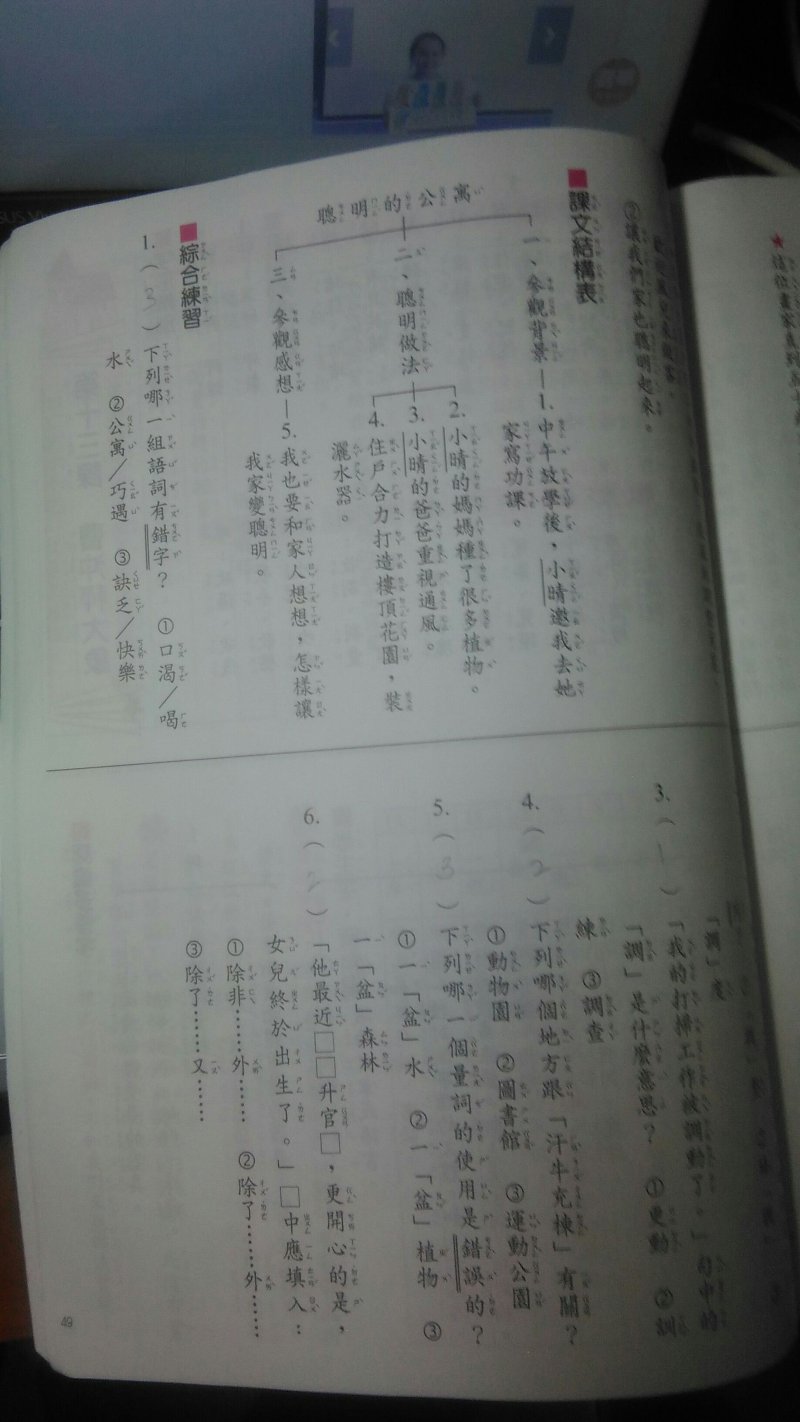 ★這位畫家
②讓我們家也聰明起來。
課文結構表
聰明的公寓
一、參觀背景
1. 中午放學後，小晴邀我去她
家寫功課。
二、聰明做法
2. 小晴的媽媽種了很多植物。
3. 小晴的爸爸重視通風。
4. 住戶合力打造樓頂花園，裝
灑水器。
三、參觀感想
5. 我也要和家人想想，怎樣讓
我家變聰明。
綜合練習
1. （3）下列哪一組語詞有錯字？ ①口渴／喝
水 ②公寓／巧遇 ③訣乏／快樂
「調」度
3. （1）「我的打掃工作被調動了。」句中的
「調」是什麼意思？ ①更動 ②訓
練 ③調查
4. （2）下列哪個地方跟「汗牛充棟」有關？
①動物園 ②圖書館 ③運動公園
5. （3）下列哪一個量詞的使用是錯誤的？
①一「盆」水 ②一「盆」植物 ③
一「盆」森林
6. （2）「他最近□□升官□，更開心的是，
女兒終於出生了。」□中應填入：
①除非……外…… ②除了……外……
③除了……又……
49